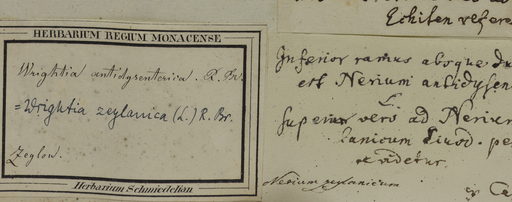 HERBARIUM REGIUM MONACENSE
Wrightia antidysenterica. R. Br.
= Wrightia zeylanica (L.) R. Br.
Zeylon.
Herbarium Schmiedelian
Echiten refere
Inferior ramus absque du
est Nerium antidysen
L.
Superior vero ad Nerium
lanicum Ejusd. pe
videtur.
Nerium zeylanicum